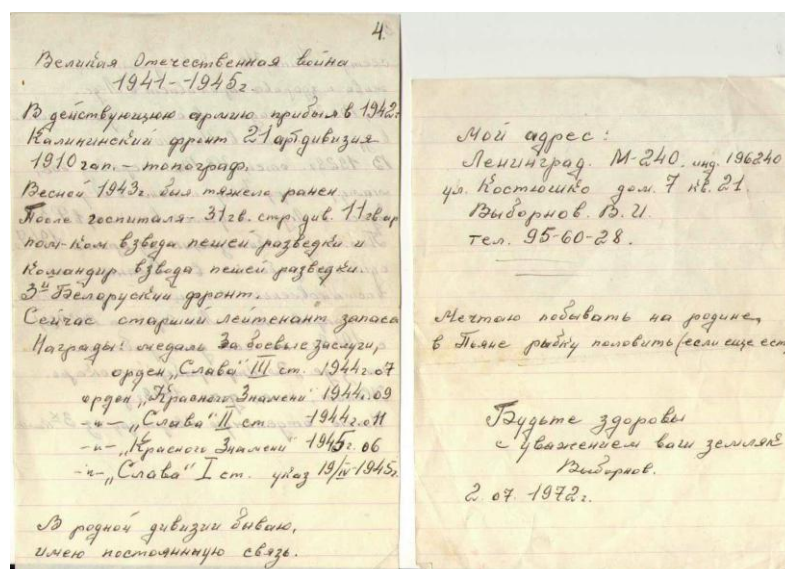 4.
Великая Отечественная война
1941-1945г
В действующую армию прибыл в 1942г
Калининский фронт 21 артдивизия
1910 гап. - топограф.
Весной 1943г. был тяжело ранен
После госпиталя - 31 гв. стр. див. 11 гв. ар
пом-ком взвода пешей разведки и
командир взвода пешей разведки.
3й Белоруский фронт.
Сейчас старший лейтенант запаса
Награды: медаль За боевые заслуги,
орден „Слава" III ст. 1944г. 07
орден „Красного Знамени" 1944г. 09
-"- „Слава" II ст 1944г. 011
-"- „Красного Знамени" 1945г. 06
-"- „Слава" I ст. указ 19/IV-1945г.
В родной дивизии бываю,
имею постоянную связь.
Мой адрес:
Ленинград. М-240. инд. 196240
ул. Костюшко дом. 7 кв. 21.
Выборнов. В. И.
тел. 95-60-28.
Мечтаю побывать на родине,
в Пьяне рыбку половить (если еще ест
Будьте здоровы
с уважением ваш земляк
Выборнов.
2 07. 1972г.